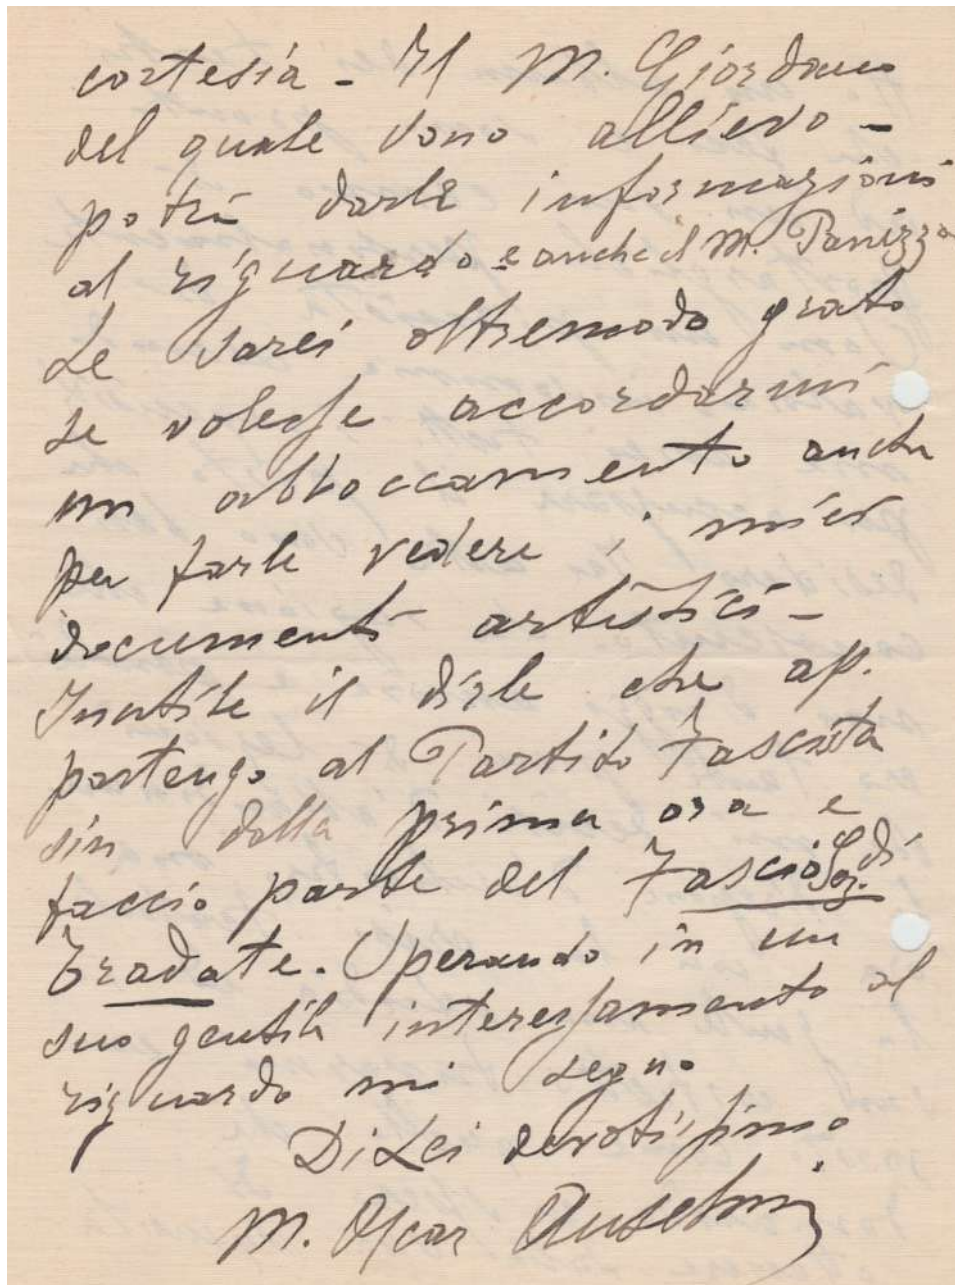 cortesia - Il M. Giordano
del quale sono allievo -
potrà darle informazioni
al riguardo - e anche il M. Panizza
Le sarei oltremodo grato
se volesse accordarmi
un abboccamento anche
per farle vedere i miei
documenti artistici -
Inutile il dirle che ap.
partengo al Partito Fascista
sin dalla prima ora e
faccio parte del Fascio di
Tradate. Sperando in un
suo gentile interessamento al
riguardo mi segno
Di Lei devotissimo
M. Oscar Anselmi